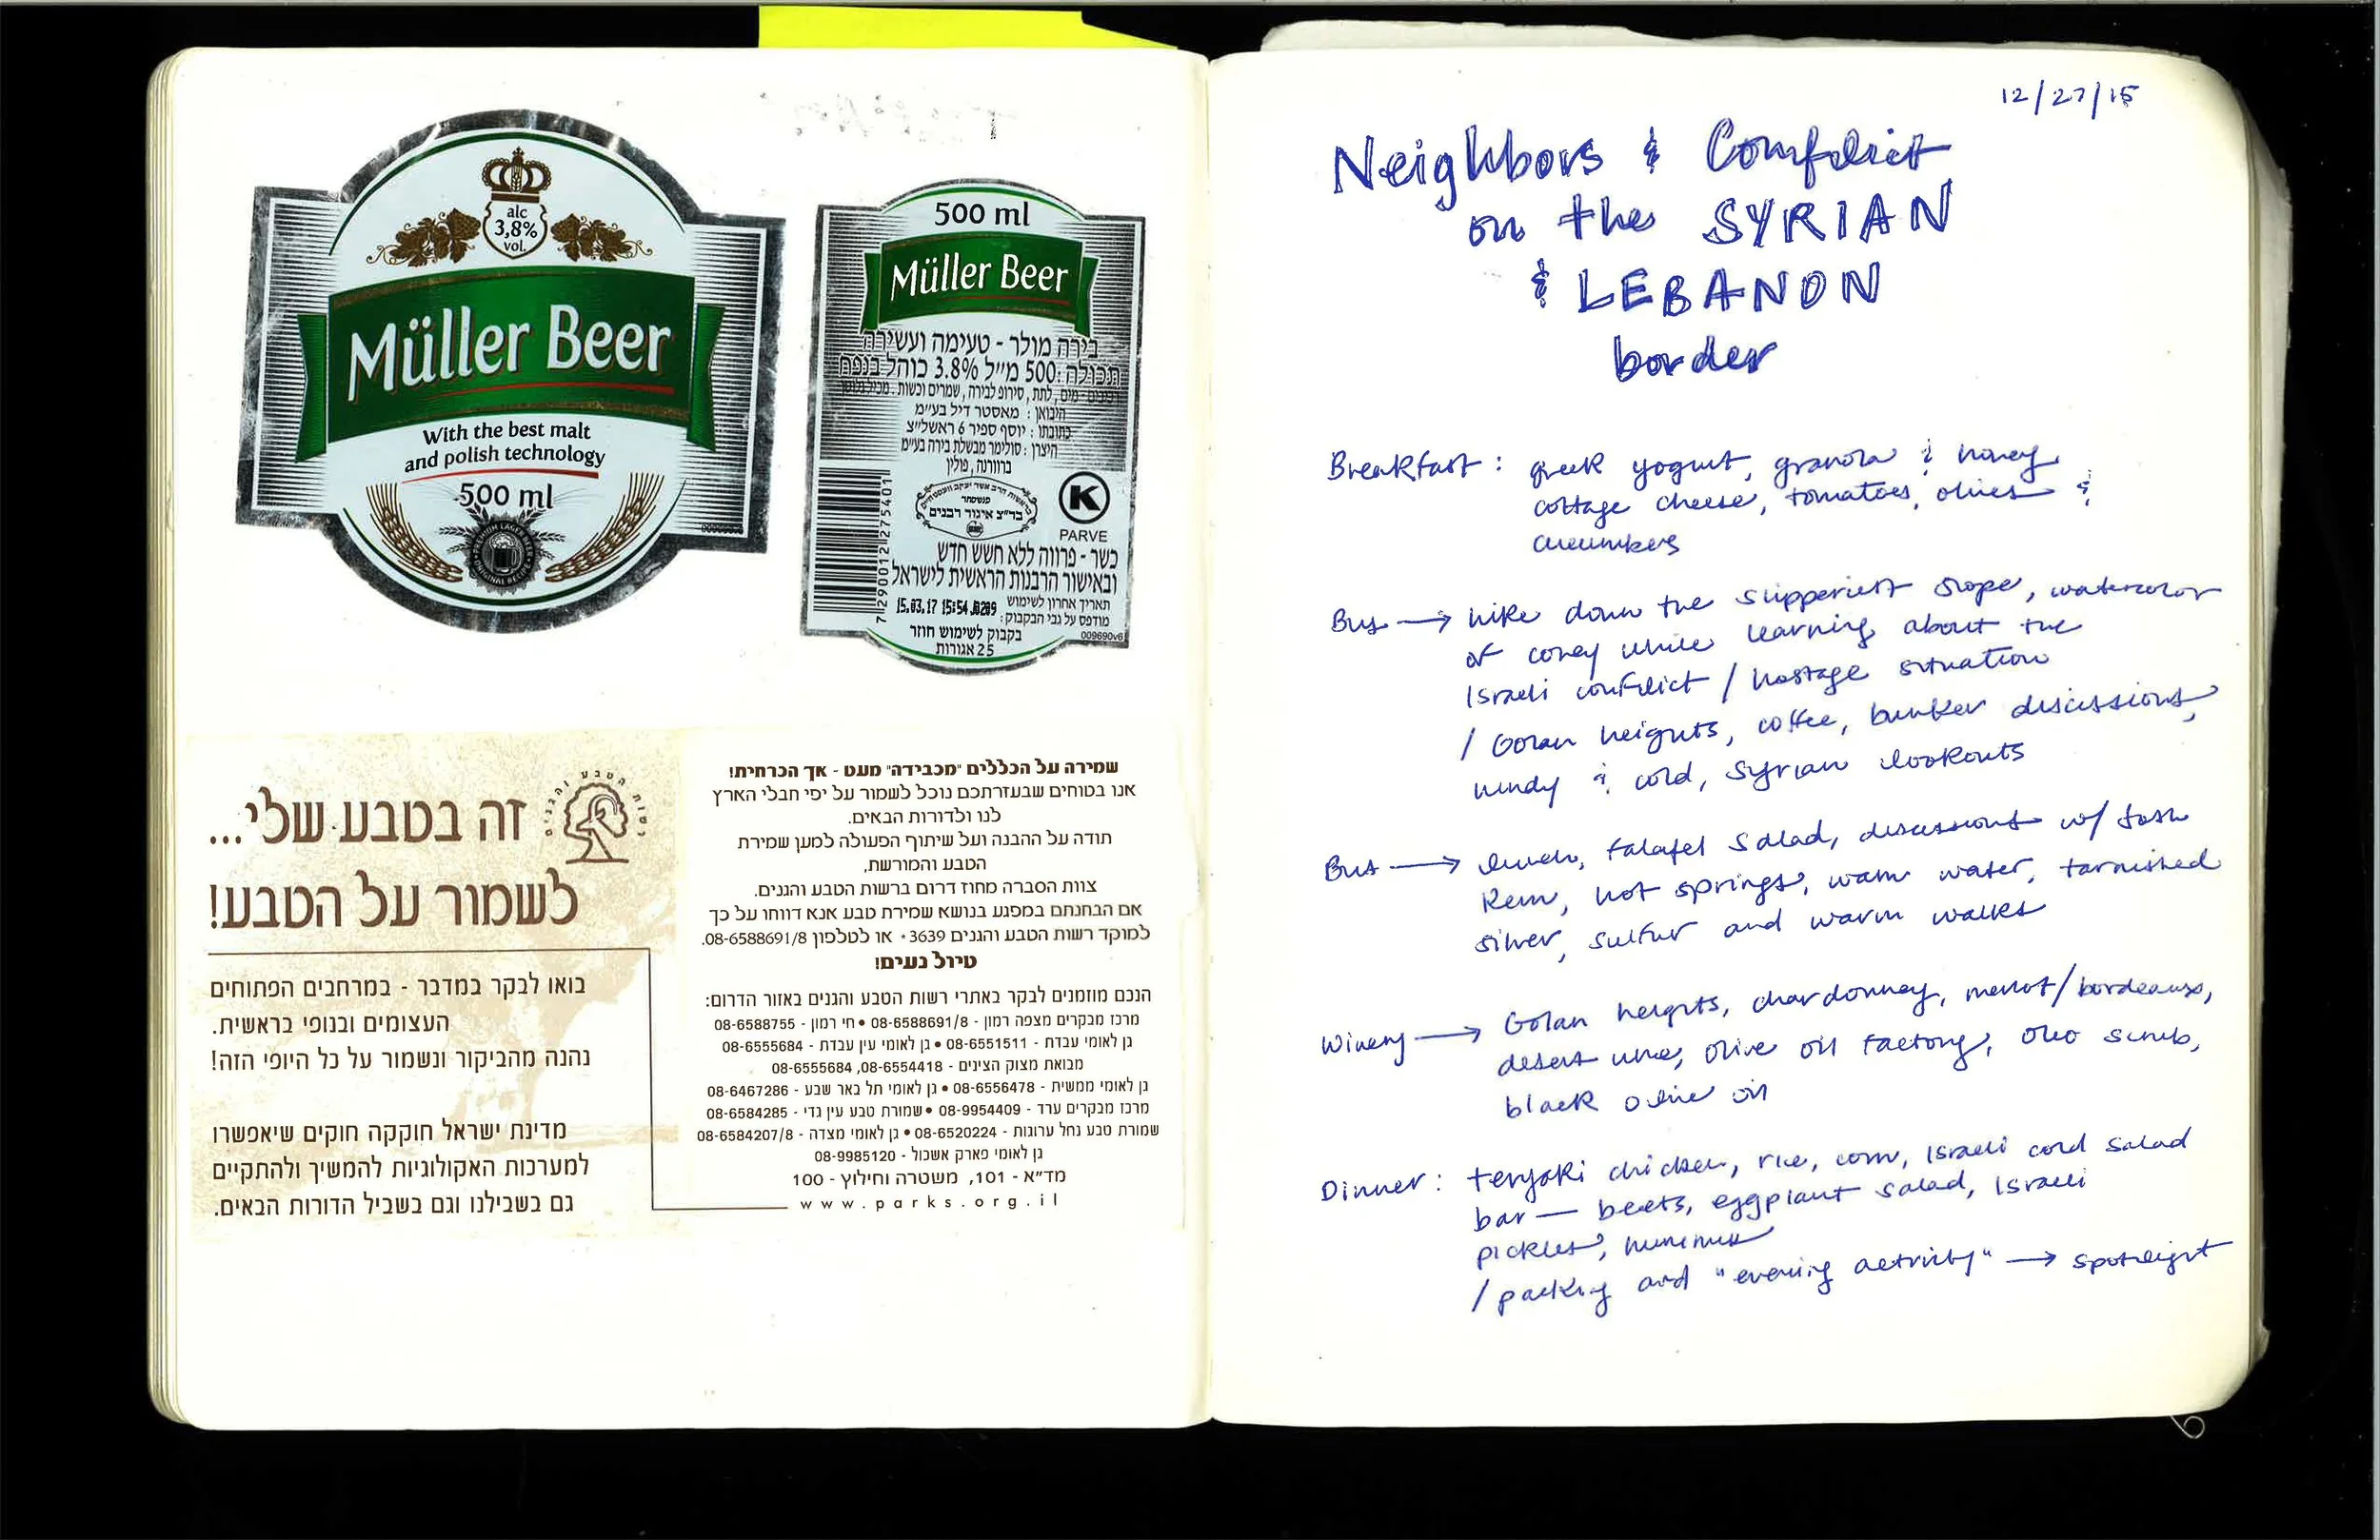 alc
3,8%
vol.
Müller Beer
With the best malt
and polish technology
500 ml
PREMIUM LAGER BEER
ORIGINAL RECIPE
500 ml
Müller Beer
בירה מולר - טעימה ועשירה
תכולה: 500 מ"ל 3.8% כוהל בנפח
רכיבים - מים, לתת, סירופ לבירה, שמרים וכשות. מכיל גלוטן
היבואן: מאסטר דיל בע"מ
כתובתו: יוסף ספיר 6 ראשל"צ
היצרן: סולימר מבשלת בירה בע"מ
ברוורנה, פולין
בד"צ איגוד רבנים
K
PARVE
כשר - פרווה ללא חשש חדש
ובאישור הרבנות הראשית לישראל
תאריך אחרון לשימוש 15.03.17 15:54
מודפס על גבי הבקבוק:
בקבוק לשימוש חוזר
25 אגורות
009690v6
7290012275401
רשות הטבע והגנים
זה בטבע שלי...
לשמור על הטבע!
בואו לבקר במדבר - במרחבים הפתוחים
העצומים ובנופי בראשית.
נהנה מהביקור ונשמור על כל היופי הזה!
מדינת ישראל חוקקה חוקים שיאפשרו
למערכות האקולוגיות להמשיך ולהתקיים
גם בשבילנו וגם בשביל הדורות הבאים.
שמירה על הכללים "מכבידה" מעט - אך הכרחית!
אנו בטוחים שבעזרתכם נוכל לשמור על יפי חבלי הארץ
לנו ולדורות הבאים.
תודה על ההבנה ועל שיתוף הפעולה למען שמירת
הטבע והמורשת,
צוות הסברה מחוז דרום ברשות הטבע והגנים.
אם הבחנתם במפגע בנושא שמירת טבע אנא דווחו על כך
למוקד רשות הטבע והגנים 3639* או לטלפון 08-6588691/8.
טיול נעים!
הנכם מוזמנים לבקר באתרי רשות הטבע והגנים באזור הדרום:
מרכז מבקרים מצפה רמון - 08-6588691/8 • חי רמון - 08-6588755
גן לאומי עבדת - 08-6551511 • גן לאומי עין עבדת - 08-6555684
מבואת מצוק הצינים - 08-6554418, 08-6555684
גן לאומי ממשית - 08-6556478 • גן לאומי תל באר שבע - 08-6467286
מרכז מבקרים ערד - 08-9954409 • שמורת טבע עין גדי - 08-6584285
שמורת טבע נחל ערוגות - 08-6520224 • גן לאומי מצדה - 08-6584207/8
גן לאומי פארק אשכול - 08-9985120
מד"א - 101, משטרה וחילוץ - 100
www.parks.org.il
12/27/15
Neighbors & Comflict
on the SYRIAN
& LEBANON
border
Breakfast: greek yogurt, granola & honey
cottage cheese, tomatoes, olives &
cucumbers
Bus → hike down the slipperiest slope, watercolor
of coney while learning about the
Israeli conflict / hostage situation
/ Golan heights, coffee, bunker discissions,
windy & cold, syrian lookouts
Bus → lunch, falafel salad, discussions w/ Josh
Rem, hot springs, warm water, tarnished
silver, sulfur and warm walks
Winery → Golan heights, chardonnay, merlot/bordeaux,
desert wine, olive oil factory, oleo scrub,
black olive oil
Dinner: teryaki chicken, rice, corn, Israeli cold salad
bar — beets, eggplant salad, Israeli
pickles, hummus
/ packing and "evening activity" → spotlight